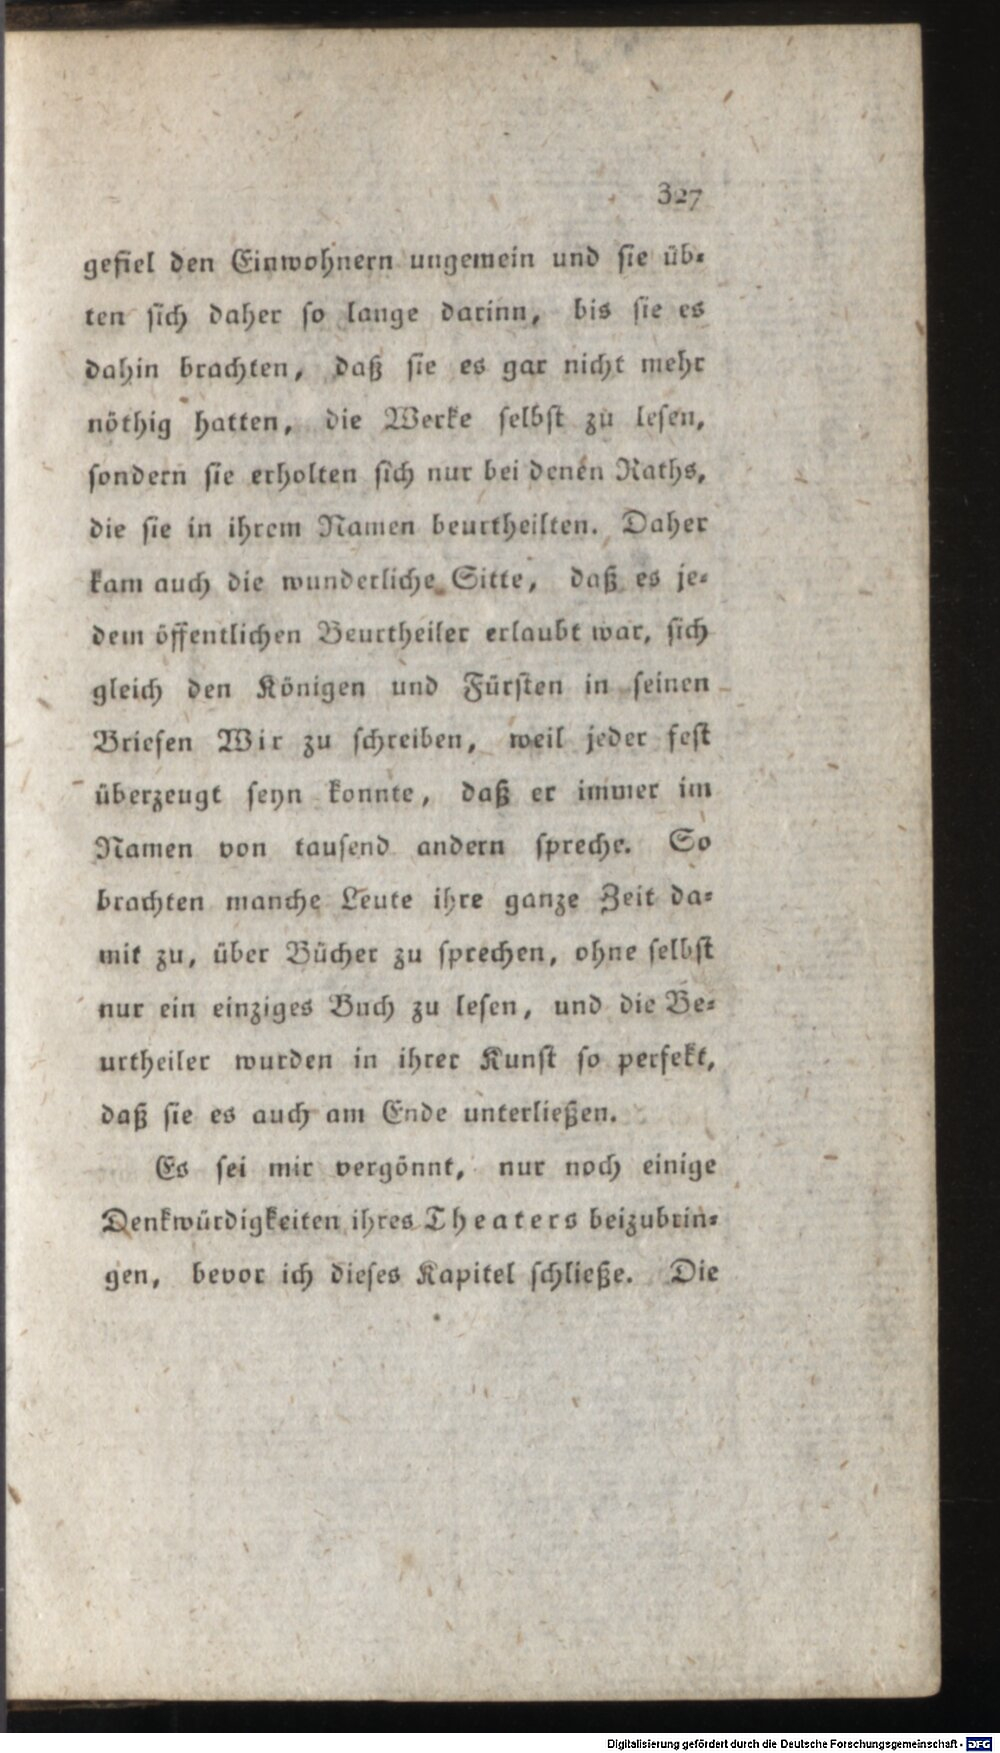 327
gefiel den Einwohnern ungemein und sie üb-
ten sich daher so lange darinn, bis sie es
dahin brachten, daß sie es gar nicht mehr
nöthig hatten, die Werke selbst zu lesen,
sondern sie erholten sich nur bei denen Raths,
die sie in ihrem Namen beurtheilten. Daher
kam auch die wunderliche Sitte, daß es je-
dem öffentlichen Beurtheiler erlaubt war, sich
gleich den Königen und Fürsten in seinen
Briefen Wir zu schreiben, weil jeder fest
überzeugt seyn konnte, daß er immer im
Namen von tausend andern spreche. So
brachten manche Leute ihre ganze Zeit da-
mit zu, über Bücher zu sprechen, ohne selbst
nur ein einziges Buch zu lesen, und die Be-
urtheiler wurden in ihrer Kunst so perfekt,
daß sie es auch am Ende unterließen.
Es sei mir vergönnt, nur noch einige
Denkwürdigkeiten ihres Theaters beizubrin-
gen, bevor ich dieses Kapitel schließe. Die
Digitalisierung gefördert durch die Deutsche Forschungsgemeinschaft - DFG